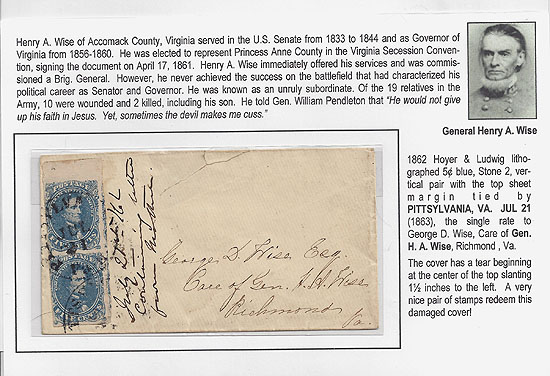 Henry A. Wise of Accomack County, Virginia served in the U.S. Senate from 1833 to 1844 and as Governor of
Virginia from 1856-1860. He was elected to represent Princess Anne County in the Virginia Secession Conven-
tion, signing the document on April 17, 1861. Henry A. Wise immediately offered his services and was commis-
sioned a Brig. General. However, he never achieved the success on the battlefield that had characterized his
political career as Senator and Governor. He was known as an unruly subordinate. Of the 19 relatives in the
Army, 10 were wounded and 2 killed, including his son. He told Gen. William Pendleton that "He would not give
up his faith in Jesus. Yet, sometimes the devil makes me cuss."
General Henry A. Wise
1862 Hoyer & Ludwig litho-
graphed 5¢ blue, Stone 2, ver-
tical pair with the top sheet
margin tied by
PITTSYLVANIA, VA. JUL 21
(1863), the single rate to
George D. Wise, Care of Gen.
H. A. Wise, Richmond , Va.
The cover has a tear beginning
at the center of the top slanting
1½ inches to the left. A very
nice pair of stamps redeem this
damaged cover!
George D. Wise Esq.
Care of Gen. H. A. Wise
Richmond
Va